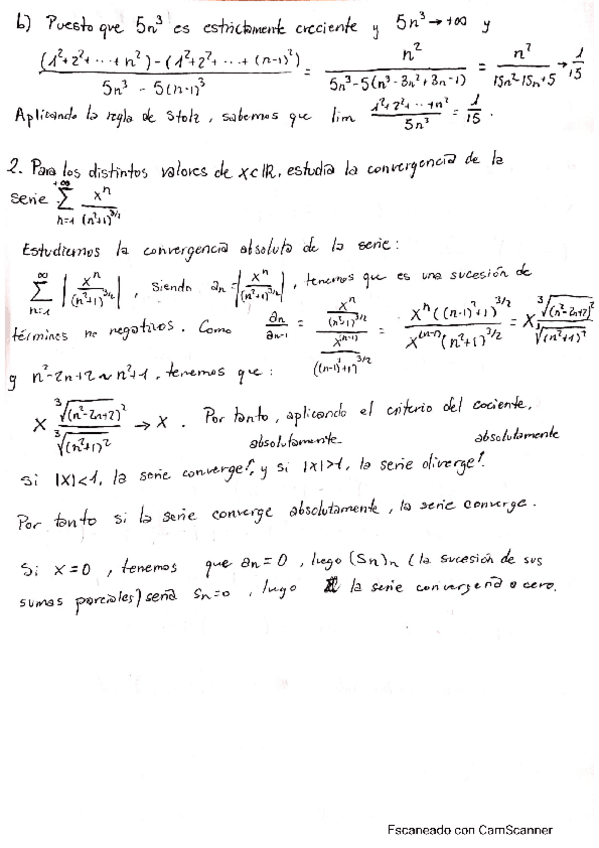 b) Puesto que 5n³ es estrictamente creciente y 5n³ → +∞ y
((1²+2²+···+n²) - (1²+2²+···+(n-1)²)) / (5n³ - 5(n-1)³) = n² / (5n³-5(n³-3n²+3n-1)) = n² / (15n²-15n+5) → 1/15
Aplicando la regla de Stolz, sabemos que lim (1²+2²+···+n²)/5n³ = 1/15.
2. Para los distintos valores de x∈ℝ, estudia la convergencia de la
serie Σ_{n=1}^{+∞} xⁿ/(n²+1)^{3/2}
Estudiemos la convergencia absoluta de la serie:
Σ_{n=1}^{∞} |xⁿ/(n²+1)^{3/2}|, siendo an = |xⁿ/(n²+1)^{3/2}|, tenemos que es una sucesión de
términos no negativos. Como an/an-1 = (xⁿ/(n²+1)^{3/2}) / (x^{(n-1)}/((n-1)²+1)^{3/2}) = xⁿ((n-1)²+1)^{3/2} / x^{(n-1)}(n²+1)^{3/2} = x ∛(n²-2n+2)² / ∛(n²+1)²
y n²-2n+2 ~ n²+1, tenemos que:
x ∛(n²-2n+2)² / ∛(n²+1)² → x. Por tanto, aplicando el criterio del cociente,
absolutamente absolutamente
si |x|<1, la serie converge, y si |x|>1, la serie diverge.
Por tanto si la serie converge absolutamente, la serie converge.
Si x=0, tenemos que an=0, luego (Sn)n (la sucesión de sus
sumas parciales) será Sn=0, luego la serie convergerá a cero.
Escaneado con CamScanner